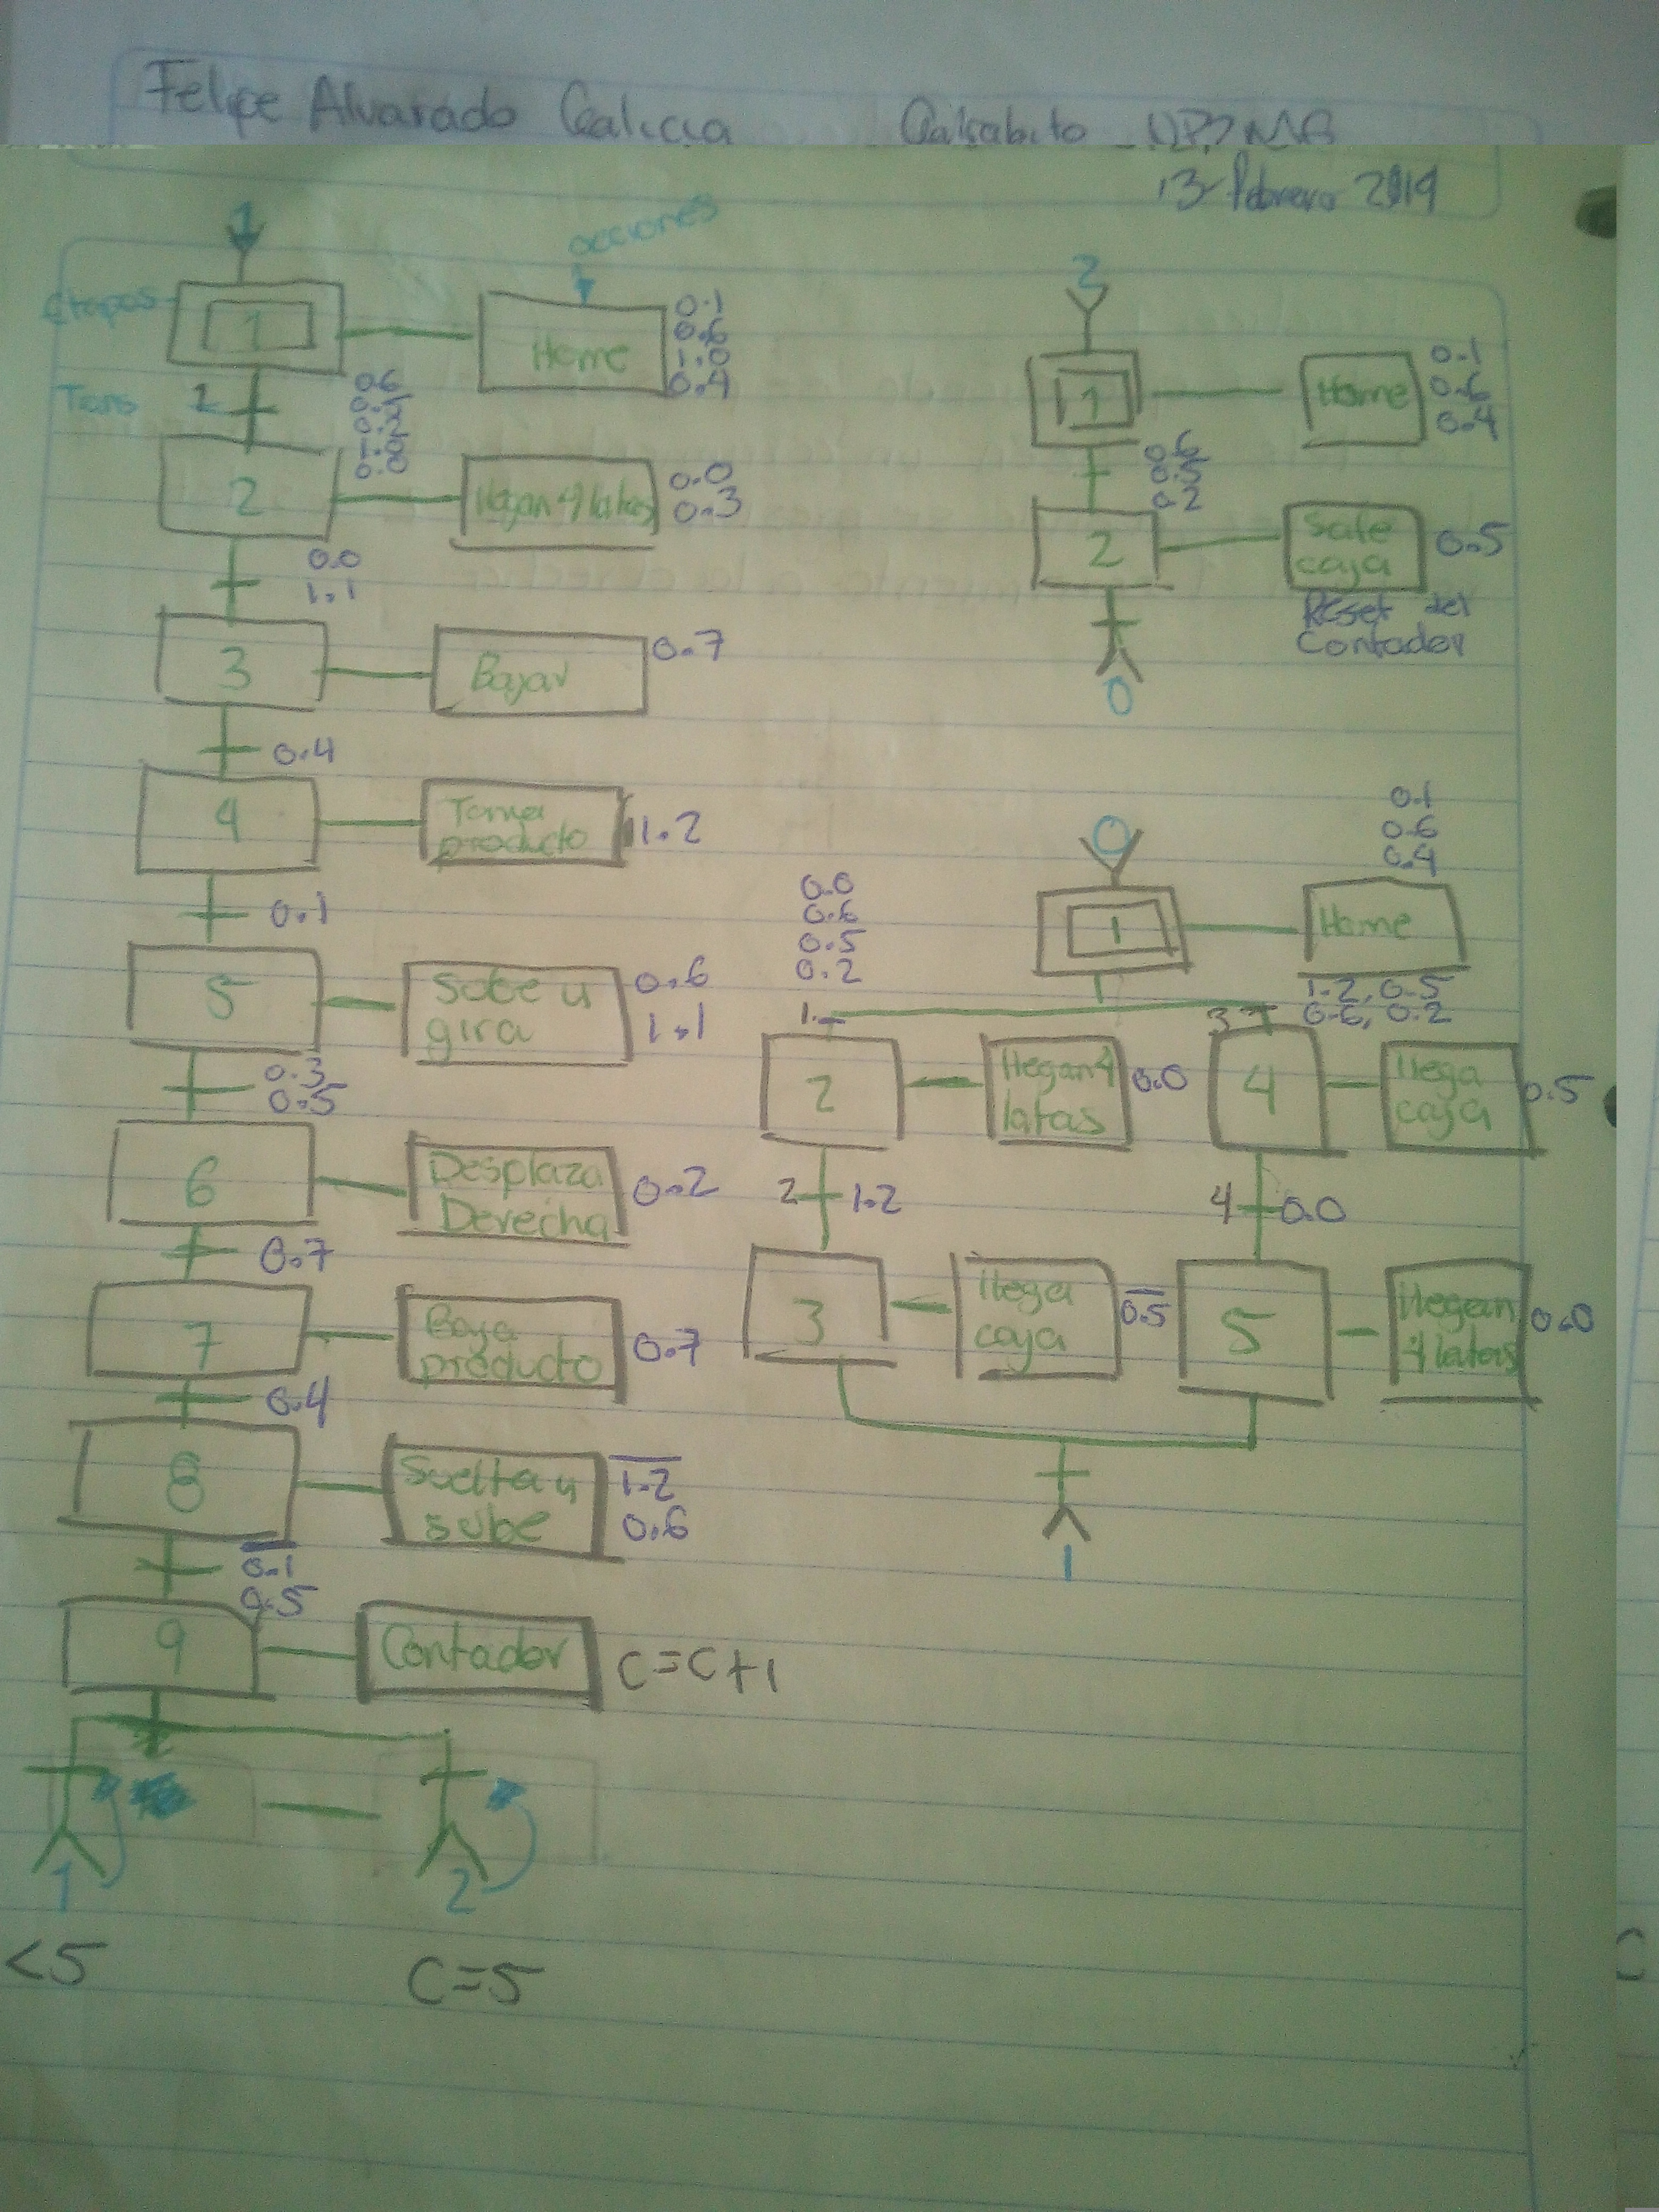 Felipe Alvarado Galicia
13 febrero 2019
1
acciones
Etapas
1
Home
0.1
0.6
1.0
0.4
Trans
1
0.6
0.2
1.0
0.0
2
llegan 4 latas
0.0
0.3
0.0
1.1
3
Bajar
0.7
0.4
4
Toma
producto
1.2
0.1
5
Sube y
gira
0.6
1.1
0.3
0.5
6
Desplaza
Derecha
0.2
0.7
7
Baja
producto
0.7
0.4
8
Suelta y
sube
1.2
0.6
0.1
0.5
9
Contador
C=C+1
1
2
<5
C=5
2
1
Home
0.1
0.6
0.4
0.6
0.5
0.2
2
Sale
caja
0.5
Reset del
Contador
0
0
1
Home
0.1
0.6
0.4
0.0
0.6
0.5
0.2
1
3
1.2, 0.5
0.6, 0.2
2
llegan 4
latas
0.0
4
llega
caja
0.5
2
1.2
4
0.0
3
llega
caja
0.5
5
llegan
4 latas
0.0
1
C